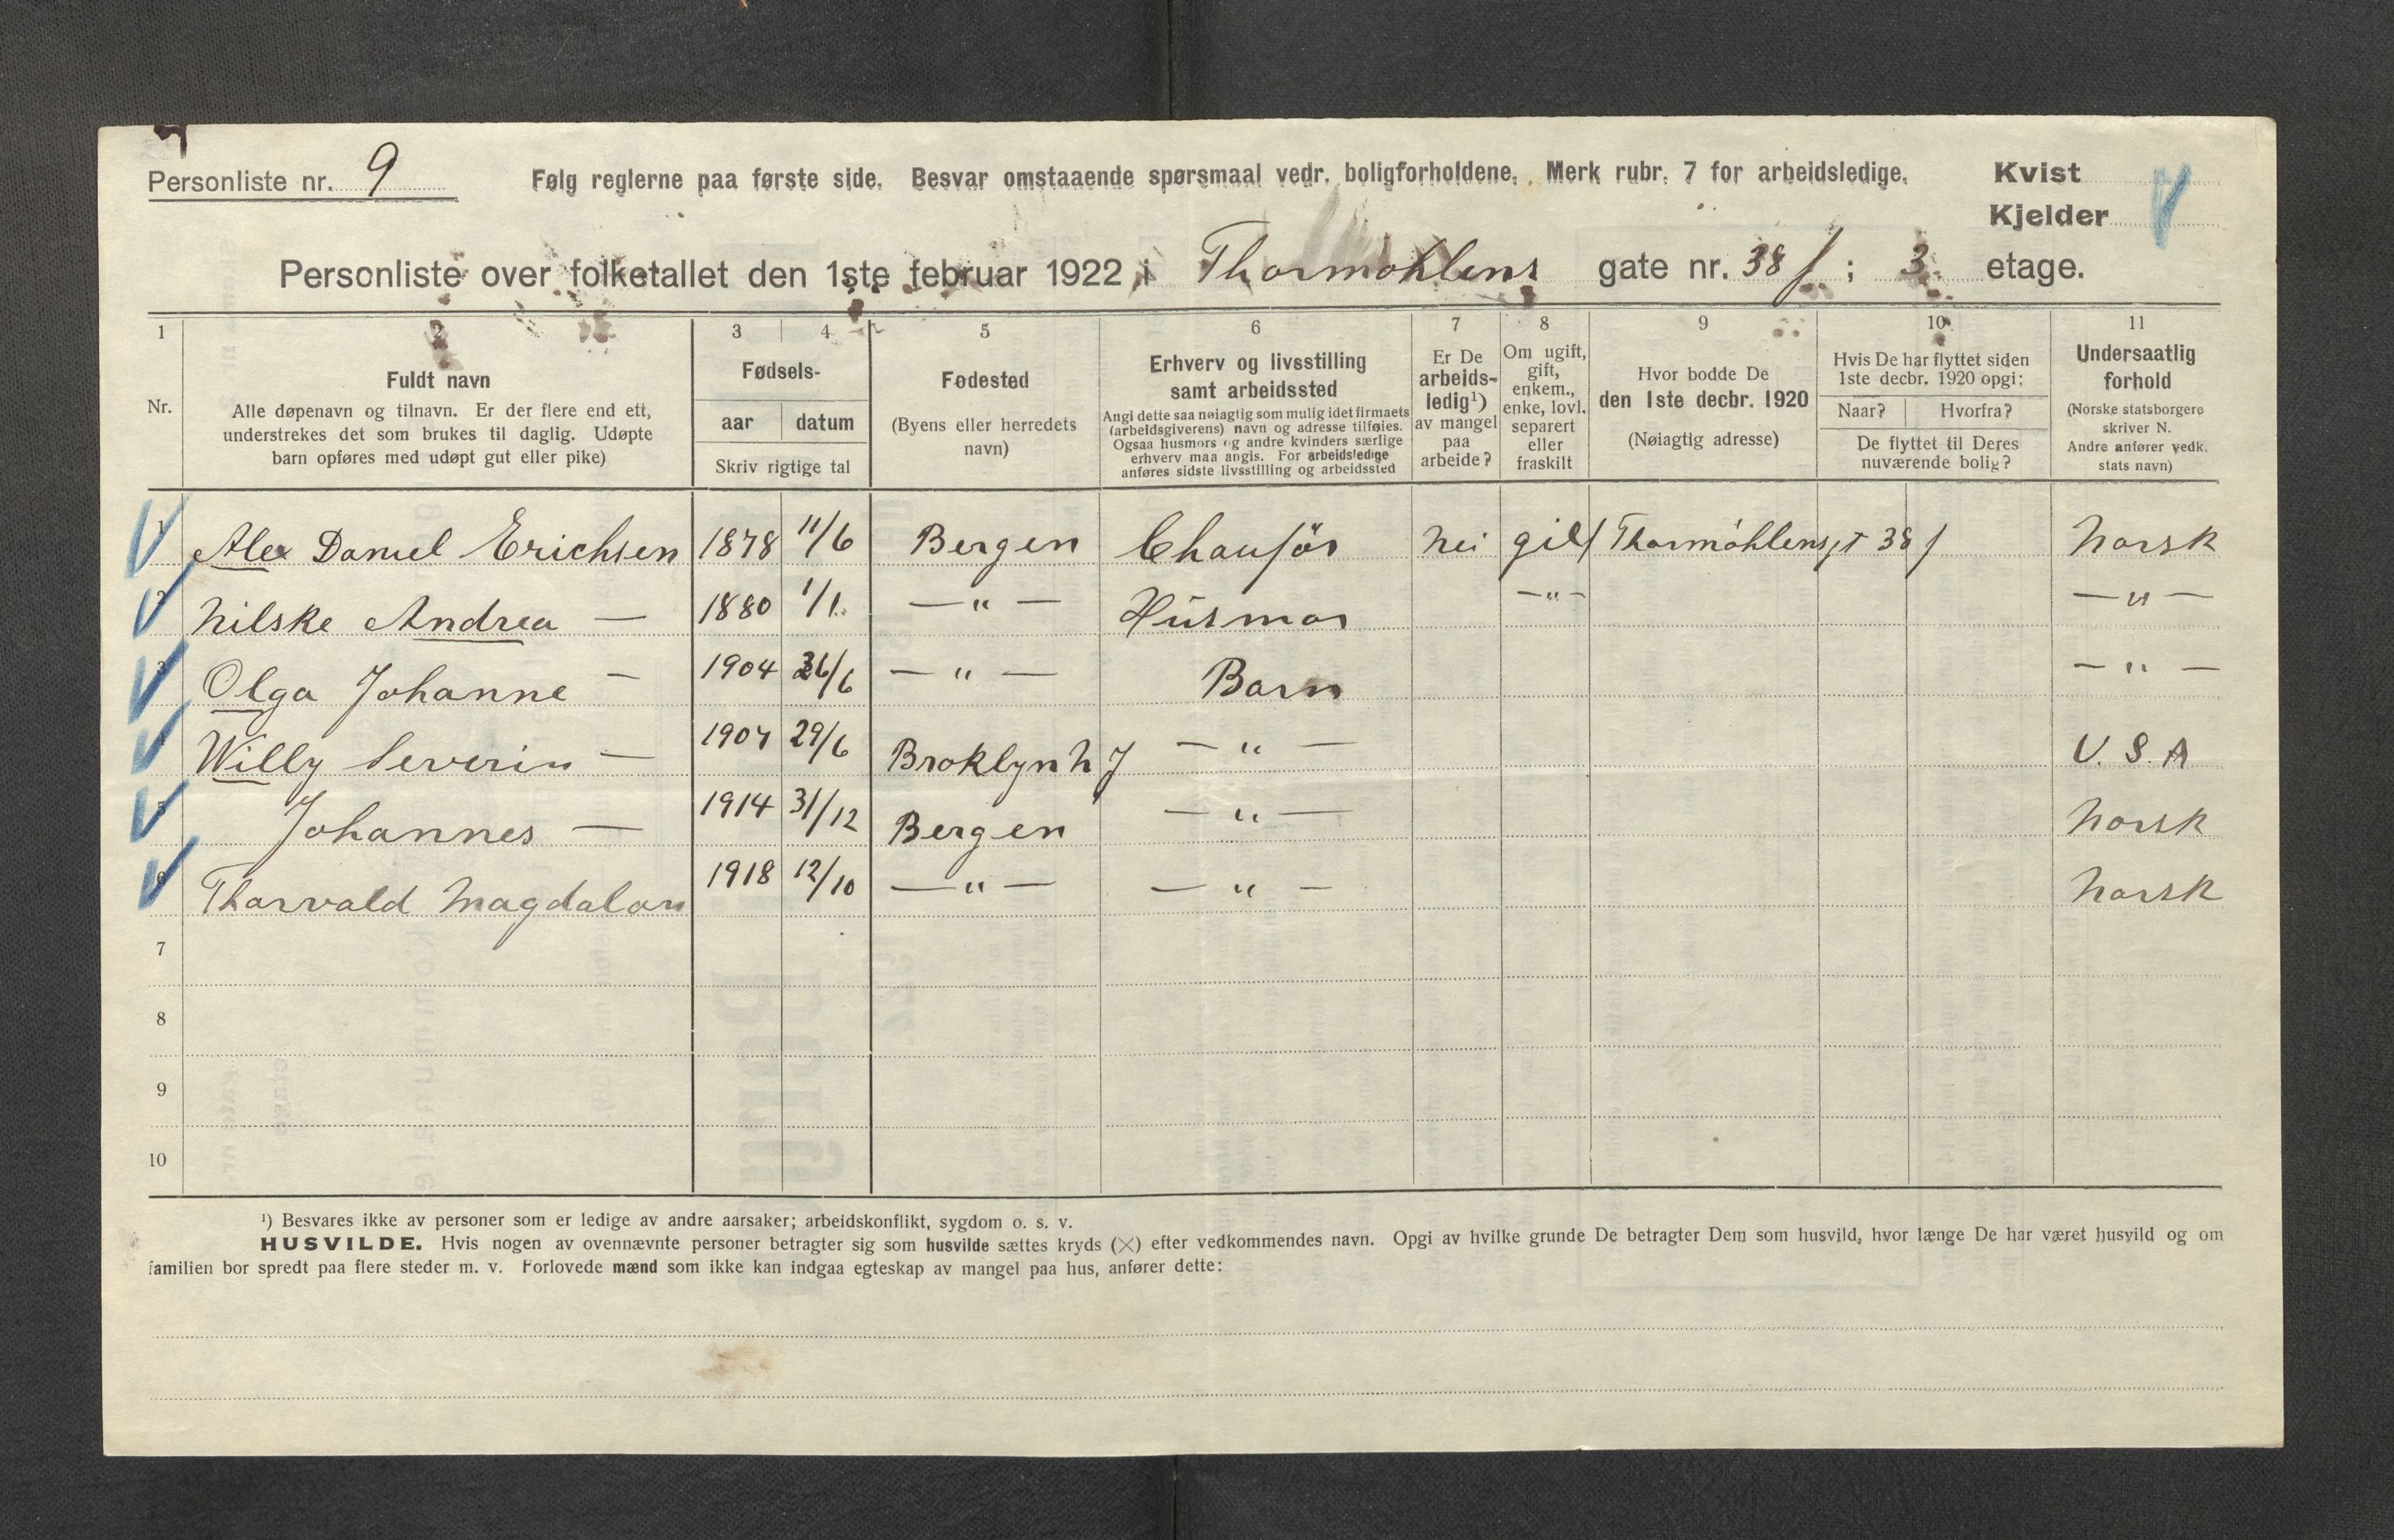 Personliste nr. 9
Følg reglerne paa første side. Besvar omstaaende spørsmaal vedr. boligforholdene. Merk rubr. 7 for arbeidsledige.
Kvist
Kjelder
Personliste over folketallet den 1ste februar 1922 i Thormøhlens gate nr. 38 f ; 3. etage.
1 2 3 4 5 6 7 8 9 10 11
Nr.
Fuldt navn
Alle døpenavn og tilnavn. Er der flere end ett,
understrekes det som brukes til daglig. Udøpte
barn opføres med udøpt gut eller pike)
Fødsels-
aar datum
Skriv rigtige tal
Fødested
(Byens eller herredets
navn)
Erhverv og livsstilling
samt arbeidssted
Angi dette saa nøiagtig som mulig idet firmaets
(arbeidsgiverens) navn og adresse tilføies.
Ogsaa husmors og andre kvinders særlige
erhverv maa angis. For arbeidsledige
anføres sidste livsstilling og arbeidssted
Er De
arbeids-
ledig¹)
av mangel
paa
arbeide?
Om ugift,
gift,
enkem.,
enke, lovl.
separert
eller
fraskilt
Hvor bodde De
den 1ste decbr. 1920
(Nøiagtig adresse)
Hvis De har flyttet siden
1ste decbr. 1920 opgi:
Naar? Hvorfra?
De flyttet til Deres
nuværende bolig?
Undersaatlig
forhold
(Norske statsborgere
skriver N.
Andre anfører vedk.
stats navn)
1 Alex Daniel Erichsen 1878 11/6 Bergen Chauför Nei gift Thormöhlensgt 38 f Norsk
2 Nilske Andrea — 1880 1/1 — " — Husmor — " — — " —
3 Olga Johanne — 1904 26/6 — " — Barn — " —
4 Willy Severin — 1907 29/6 Broklyn N J — " — U. S. A
5 Johannes — 1914 31/12 Bergen — " — Norsk
6 Thorvald Magdalon 1918 12/10 — " — — " — Norsk
7
8
9
10
¹) Besvares ikke av personer som er ledige av andre aarsaker; arbeidskonflikt, sygdom o. s. v.
HUSVILDE. Hvis nogen av ovennævnte personer betragter sig som husvilde sættes kryds (×) efter vedkommendes navn. Opgi av hvilke grunde De betragter Dem som husvild, hvor længe De har været husvild og om
familien bor spredt paa flere steder m. v. Forlovede mænd som ikke kan indgaa egteskap av mangel paa hus, anfører dette: